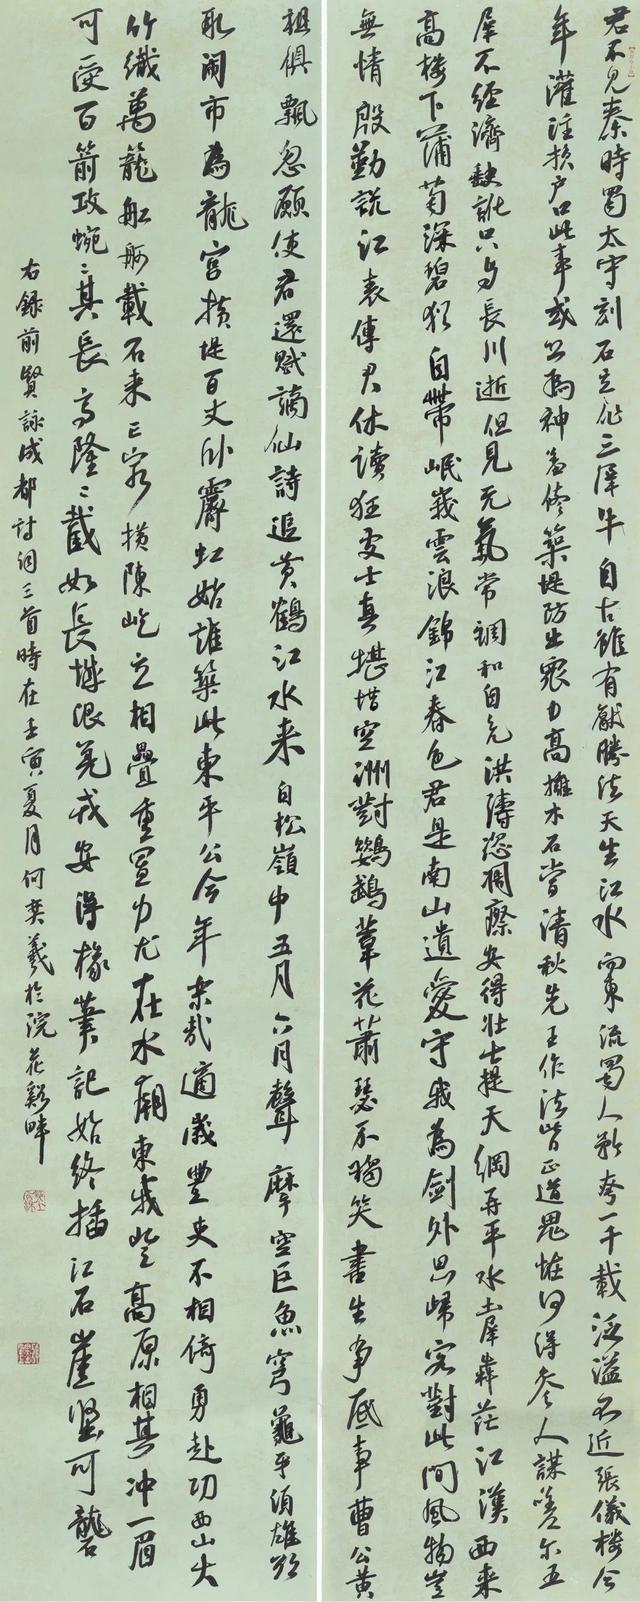 君不見秦時蜀太守刻石立作三犀牛自古雖有厭勝法天生江水向東流蜀人矜夸一千載泛溢不近張儀樓今
年灌注損户口此事或恐為神羞修築堤防出眾力高擁木石當清秋先王作法皆正道鬼怪何得參人謀嗟爾五
犀不經濟缺訛只與長川逝但見元氣常調和自免洪濤恣凋瘵安得壯士提天綱再平水土犀奔茫江漢西來
高樓下蒲萄深碧猶自帶岷峨雲浪錦江春色君是南山遺愛守我為劍外思歸客對此間風物豈
無情殷勤說江表傳君休讀狂處士真堪惜空洲對鸚鵡葦花蕭瑟不獨笑書生爭底事曹公黃
祖俱飄忽願使君還賦謫仙詩追黃鶴江水來自松嶺中五月六月聲摩空巨魚穹龜牙須雄欲
取鬧市為龍宮橫堤百丈臥霽虹始誰築此東平公今年樂哉適歲豐吏不相倚勇赴功西山大
竹織萬籠船舸載石來亡窮橫陳屹立相疊重置力尤在水廟東我登高原相其冲一眉
可受百箭攻蜿蜿其長高隆隆截如長城限羌戎安得椽筆記始終插江石崖堅可礱
右錄前賢詠成都詩詞三首時在壬寅夏月何奕羲於浣花谿畔